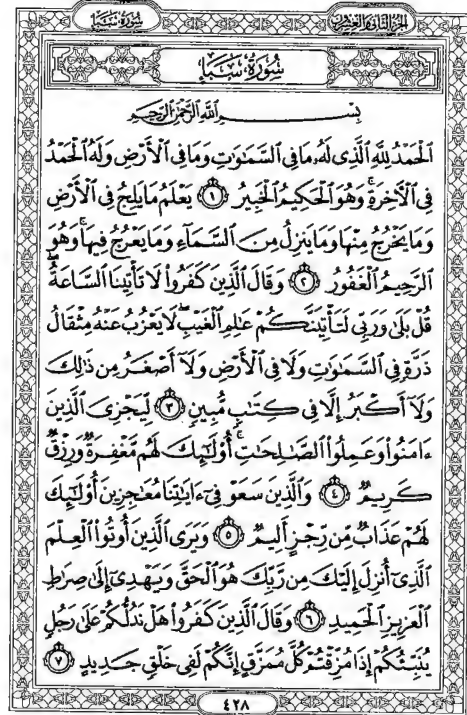 الجزء الثاني والعشرون سورة سبإ
سورة سبإ
بسم الله الرحمن الرحيم
ٱلْحَمْدُ لِلَّهِ ٱلَّذِى لَهُۥ مَا فِى ٱلسَّمَٰوَٰتِ وَمَا فِى ٱلْأَرْضِ وَلَهُ ٱلْحَمْدُ
فِى ٱلْءَاخِرَةِ ۚ وَهُوَ ٱلْحَكِيمُ ٱلْخَبِيرُ ۝١ يَعْلَمُ مَا يَلِجُ فِى ٱلْأَرْضِ
وَمَا يَخْرُجُ مِنْهَا وَمَا يَنزِلُ مِنَ ٱلسَّمَآءِ وَمَا يَعْرُجُ فِيهَا ۚ وَهُوَ
ٱلرَّحِيمُ ٱلْغَفُورُ ۝٢ وَقَالَ ٱلَّذِينَ كَفَرُوا۟ لَا تَأْتِينَا ٱلسَّاعَةُ ۖ
قُلْ بَلَىٰ وَرَبِّى لَتَأْتِيَنَّكُمْ عَٰلِمِ ٱلْغَيْبِ ۖ لَا يَعْزُبُ عَنْهُ مِثْقَالُ
ذَرَّةٍ فِى ٱلسَّمَٰوَٰتِ وَلَا فِى ٱلْأَرْضِ وَلَآ أَصْغَرُ مِن ذَٰلِكَ
وَلَآ أَكْبَرُ إِلَّا فِى كِتَٰبٍ مُّبِينٍ ۝٣ لِّيَجْزِىَ ٱلَّذِينَ
ءَامَنُوا۟ وَعَمِلُوا۟ ٱلصَّٰلِحَٰتِ ۚ أُو۟لَٰٓئِكَ لَهُم مَّغْفِرَةٌ وَرِزْقٌ
كَرِيمٌ ۝٤ وَٱلَّذِينَ سَعَوْ فِىٓ ءَايَٰتِنَا مُعَٰجِزِينَ أُو۟لَٰٓئِكَ
لَهُمْ عَذَابٌ مِّن رِّجْزٍ أَلِيمٌ ۝٥ وَيَرَى ٱلَّذِينَ أُوتُوا۟ ٱلْعِلْمَ
ٱلَّذِىٓ أُنزِلَ إِلَيْكَ مِن رَّبِّكَ هُوَ ٱلْحَقَّ وَيَهْدِىٓ إِلَىٰ صِرَٰطِ
ٱلْعَزِيزِ ٱلْحَمِيدِ ۝٦ وَقَالَ ٱلَّذِينَ كَفَرُوا۟ هَلْ نَدُلُّكُمْ عَلَىٰ رَجُلٍ
يُنَبِّئُكُمْ إِذَا مُزِّقْتُمْ كُلَّ مُمَزَّقٍ إِنَّكُمْ لَفِى خَلْقٍ جَدِيدٍ ۝٧
٤٢٨